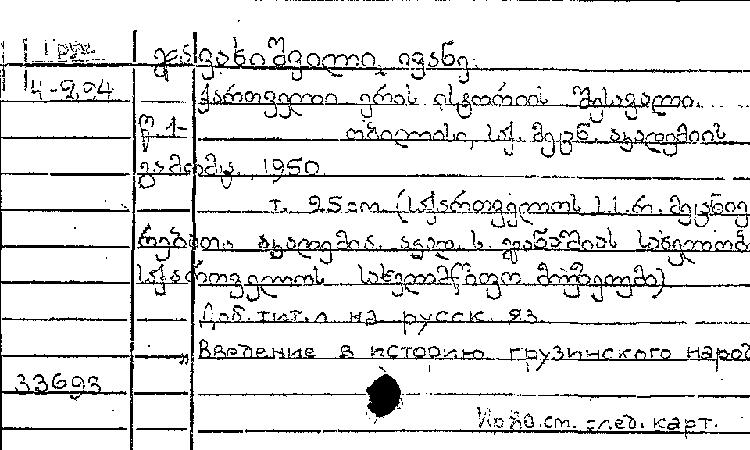 Груз.
ჯავახიშვილი, ივანე.
4-294
ქართველი ერის ისტორიის შესავალი.
წ. 1-
თბილისი, საქ. მეცნ. აკადემიის
გამომც., 1950.
(საქართველოს სსრ. მეცნიე
რებათა აკადემია. აკად. ს. ჯანაშიას სახელობ
საქართველოს სახელმწიფო მუზეუმი)
Доб. тит. л на русск. яз.
„Введение в историю грузинского народ
33693
см. след. карт.